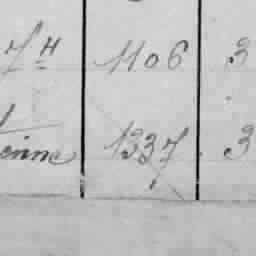 7 H 1106 3
enne 1337 3